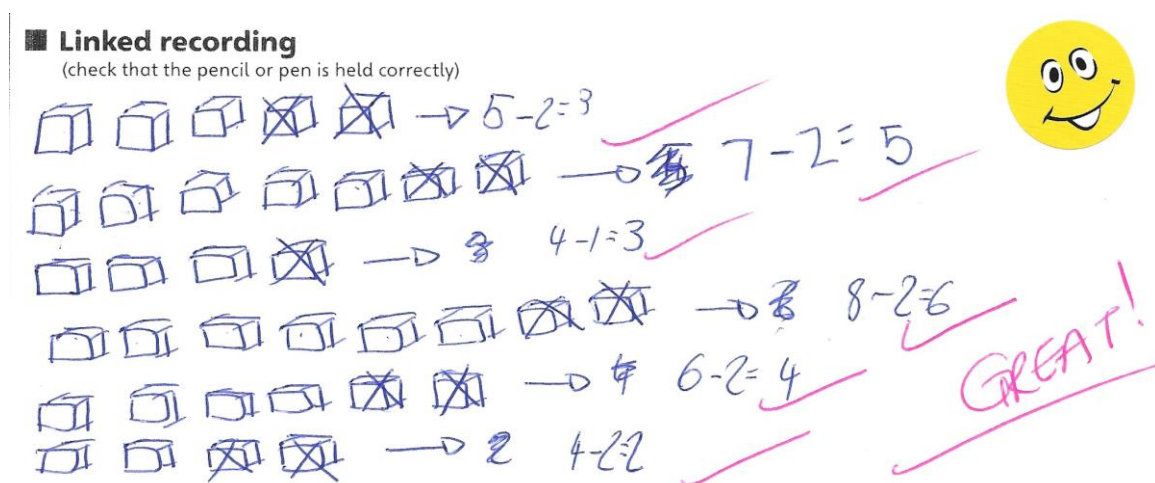 Linked recording
(check that the pencil or pen is held correctly)
5-2=3
7-2=5
4-1=3
8-2=6
6-2=4
GREAT!
2 4-2=2